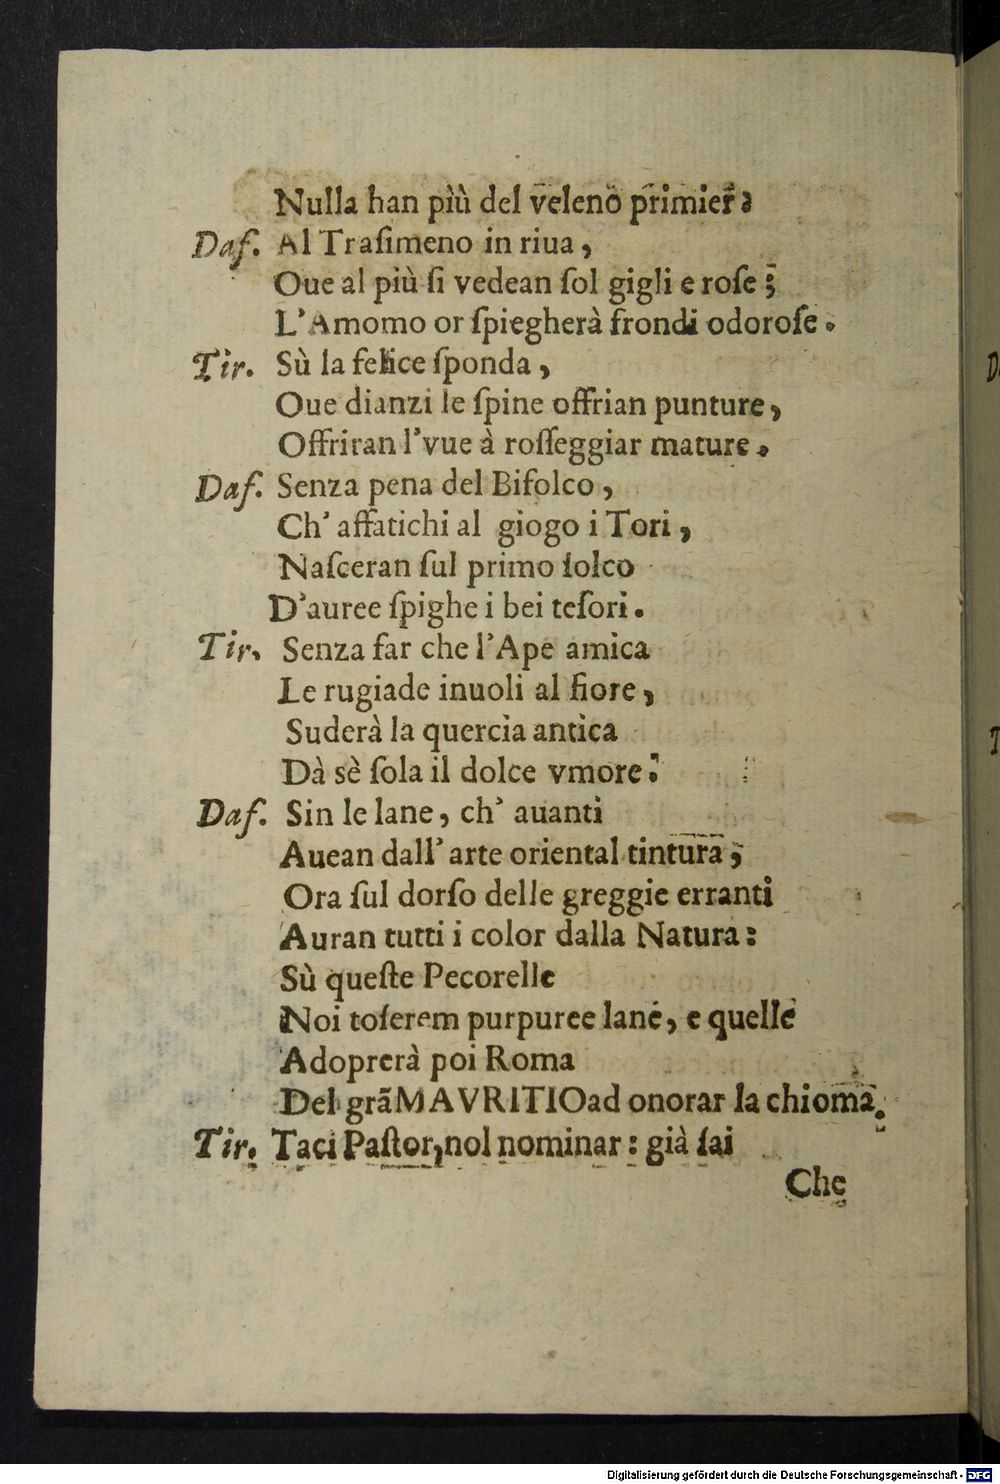 Nulla han più del veleno primier?
Daſ. Al Traſimeno in riua,
Oue al più ſi vedean ſol gigli e roſe;
L'Amomo or ſpiegherà frondi odoroſe.
Tir. Sù la felice ſponda,
Oue dianzi le ſpine offrian punture,
Offriran l'vue à roſſeggiar mature.
Daſ. Senza pena del Bifolco,
Ch' affatichi al giogo i Tori,
Naſceran ſul primo ſolco
D'auree ſpighe i bei teſori.
Tir. Senza far che l'Ape amica
Le rugiade inuoli al fiore,
Suderà la quercia antica
Dà sè ſola il dolce vmore.
Daſ. Sin le lane, ch' auanti
Auean dall' arte oriental tintura,
Ora ſul dorſo delle greggie erranti
Auran tutti i color dalla Natura:
Sù queſte Pecorelle
Noi toſerem purpuree lane, e quelle
Adoprerà poi Roma
Del grã MAVRITIO ad onorar la chioma.
Tir. Taci Paſtor, nol nominar: già ſai
Che
Digitalisierung gefördert durch die Deutsche Forschungsgemeinschaft - DFG